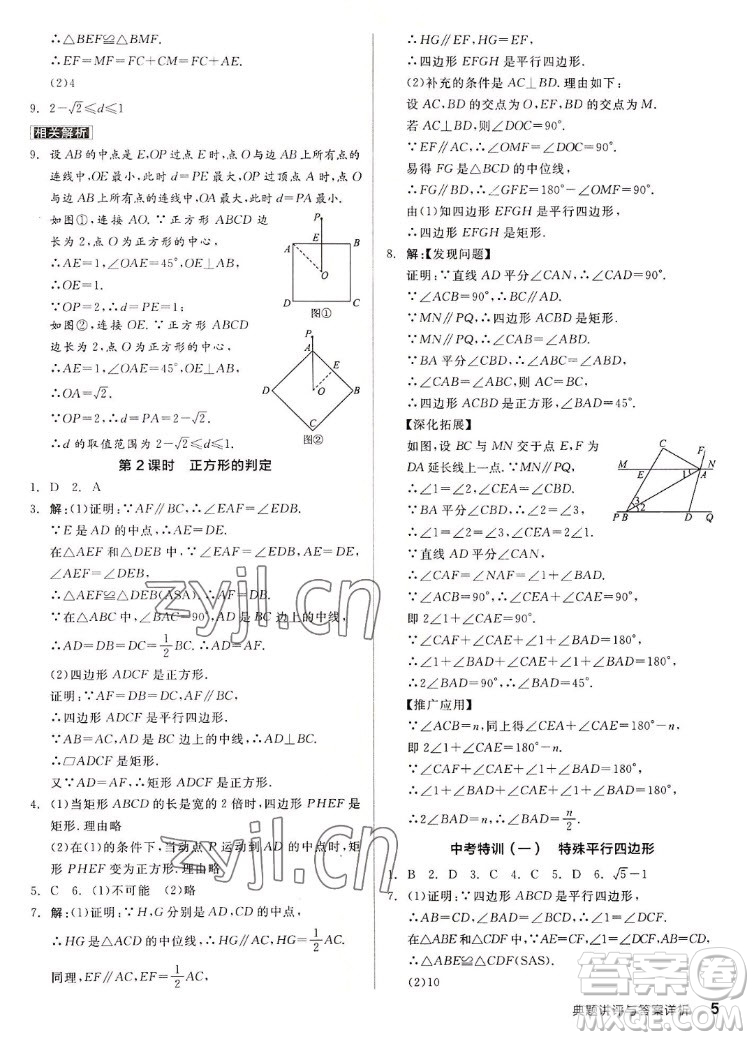 ∴△BEF≌△BMF.
∴EF=MF=FC+CM=FC+AE.
(2)4
9. 2-√2≤d≤1
相关解析
9. 设 AB 的中点是 E,OP 过点 E 时,点 O 与边 AB 上所有点的
连线中,OE 最小,此时 d=PE 最大,OP 过顶点 A 时,点 O
与边 AB 上所有点的连线中,OA 最大,此时 d=PA 最小.
如图①,连接 AO.∵正方形 ABCD 边
长为 2,点 O 为正方形的中心,
∴AE=1,∠OAE=45°,OE⊥AB.
∴OE=1.
∵OP=2,∴d=PE=1;
如图②,连接 OE.∵正方形 ABCD
边长为 2,点 O 为正方形的中心,
∴AE=1,∠OAE=45°,OE⊥AB.
∴OA=√2.
∵OP=2,∴d=PA=2-√2.
∴d 的取值范围为 2-√2≤d≤1.
P
A
E
B
O
D
C
图①
P
A
E
D
O
B
C
图②
第 2 课时 正方形的判定
1. D 2. A
3. 解:(1)证明:∵AF∥BC,∴∠AFE=∠EDB.
∵E 是 AD 的中点,∴AE=DE.
在△AEF 和△DEB 中,∵∠AFE=∠EDB,AE=DE,
∠AEF=∠DEB,
∴△AEF≌△DEB(ASA).∴AF=DB.
又∵∠BAC=90°,AD 是 BC 边上的中线,
∴AD=DB=DC=1/2BC.∴AD=AF.
(2)四边形 ADCF 是正方形.
证明:∵AF=DB=DC,AF∥BC,
∴四边形 ADCF 是平行四边形.
∵AB=AC,AD 是 BC 边上的中线,∴AD⊥BC.
∴□ADCF 是矩形.
又∵AD=AF,∴矩形 ADCF 是正方形.
4. (1)当矩形 ABCD 的长是宽的 2 倍时,四边形 PHEF 是
矩形.理由略
(2)在(1)的条件下,当动点 P 运动到 AD 的中点时,矩
形 PHEF 变为正方形.理由略
5. C 6. (1)不可能 (2)略
7. 解:(1)证明:∵H,G 分别是 AD,CD 的中点,
∴HG 是△ACD 的中位线.∴HG∥AC,HG=1/2AC.
同理,EF∥AC,EF=1/2AC,
∴HG∥EF,HG=EF.
∴四边形 EFGH 是平行四边形.
(2)补充的条件是 AC⊥BD.理由如下:
设 AC,BD 的交点为 O,EF,BD 的交点为 M.
若 AC⊥BD,则∠DOC=90°.
∵EF∥AC,∴∠OMF=∠DOC=90°.
易得 FG 是△BCD 的中位线,
∴FG∥BD.∴∠GFE=180°-∠OMF=90°.
由(1)知四边形 EFGH 是平行四边形,
∴四边形 EFGH 是矩形.
8. 解:【发现问题】
证明:∵直线 AD 平分∠CAN,∴∠CAD=∠NAD.
∵∠ACB=90°,∴BC⊥AC.
∵MN∥PQ,∴四边形 ACBD 是矩形.
∵MN∥PQ,∴∠BAN=∠ABC.
∵BA 平分∠CBD,∴∠ABC=∠ABD.
∵∠ACB=90°,∴∠ACB=∠CBD=∠ADB=90°.
∴四边形 ACBD 是正方形.∴∠BAD=45°.
【深化拓展】
如图,设 BC 与 MN 交于点 E,点 F 在
DA 延长线上.∵MN∥PQ,
∴∠1=∠2,∠3+∠2=∠CEA.
∵BA 平分∠CBD,∴∠2=∠3,
∴∠1=∠2=∠3.∴∠CEA=2∠1.
∵直线 AD 平分∠CAN,
∴∠CAF=∠FAN.
∵∠ACB=90°,∴∠CEA+∠CAE=90°,
即 2∠1+∠CAE=90°.
∵∠CAF+∠CAE+∠1+∠BAD=180°,
∠FAN+∠CAF+∠CAE=180°,
∴∠FAN=∠1+∠BAD=∠CAF,
∴∠1+∠BAD+∠CAE+∠1+∠BAD=180°.
∴2∠BAD=90°.∴∠BAD=45°.
C
F
M
E
1
A
N
3
2
P
B
D
Q
【推广应用】
∵∠ACB=n,同上得∠CEA+∠CAE=180°-n,
即 2∠1+∠CAE=180°-n.
∴∠1+∠BAD+∠CAE+∠1+∠BAD=180°.
∴2∠BAD=n.∴∠BAD=n/2.
中考特训(一) 特殊平行四边形
1. B 2. D 3. C 4. C 5. D 6. √5-1
7. (1)证明:∵四边形 ABCD 是菱形,
∴AB=CD,∠BAE=∠DCF.
在△ABE 和△CDF 中,∵AB=CD,∠BAE=∠DCF,AE=CF,
∴△ABE≌△CDF(SAS).
(2)10
典题讲评与答案详析 5
zyjl.cn
zyjl.cn
答案圈